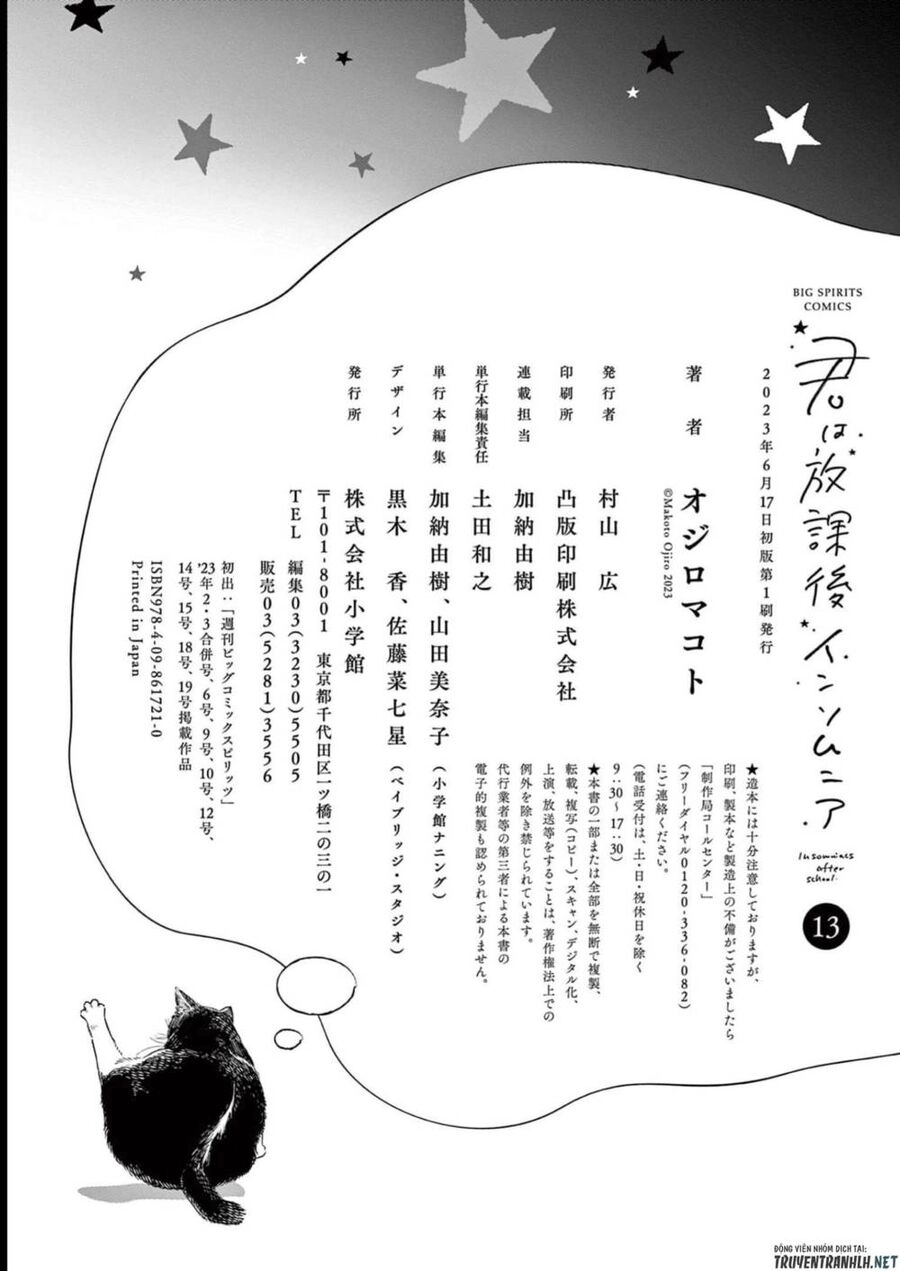 BIG SPIRITS
COMICS
君は放課後インソムニア
Insomniacs
after
school.
13
2023年6月17日初版第1刷発行
著者　オジロマコト
©Makoto Ojiro 2023
発行者　村山　広
印刷所　凸版印刷株式会社
連載担当　加納由樹
単行本編集責任　土田和之
単行本編集　加納由樹、山田美奈子(小学館ナニング)
デザイン　黒木　香、佐藤菜七星(ベイブリッジ・スタジオ)
発行所　株式会社小学館
〒101-8001　東京都千代田区一ツ橋二の三の一
TEL　編集03(3230)5505
販売03(5281)3556
初出：「週刊ビッグコミックスピリッツ」
'23年2・3合併号、6号、9号、10号、12号、
14号、15号、18号、19号掲載作品
ISBN978-4-09-861721-0
Printed in Japan
★造本には十分注意しておりますが、
印刷、製本など製造上の不備がございましたら
「制作局コールセンター」
(フリーダイヤル0120-336-082)
にご連絡ください。
(電話受付は、土・日・祝休日を除く
9:30〜17:30)
★本書の一部または全部を無断で複製、
転載、複写(コピー)、スキャン、デジタル化、
上演、放送等をすることは、著作権法上での
例外を除き禁じられています。
代行業者等の第三者による本書の
電子的複製も認められておりません。
ĐỘNG VIÊN NHÓM DỊCH TẠI:
TRUYENTRANHLH.NET